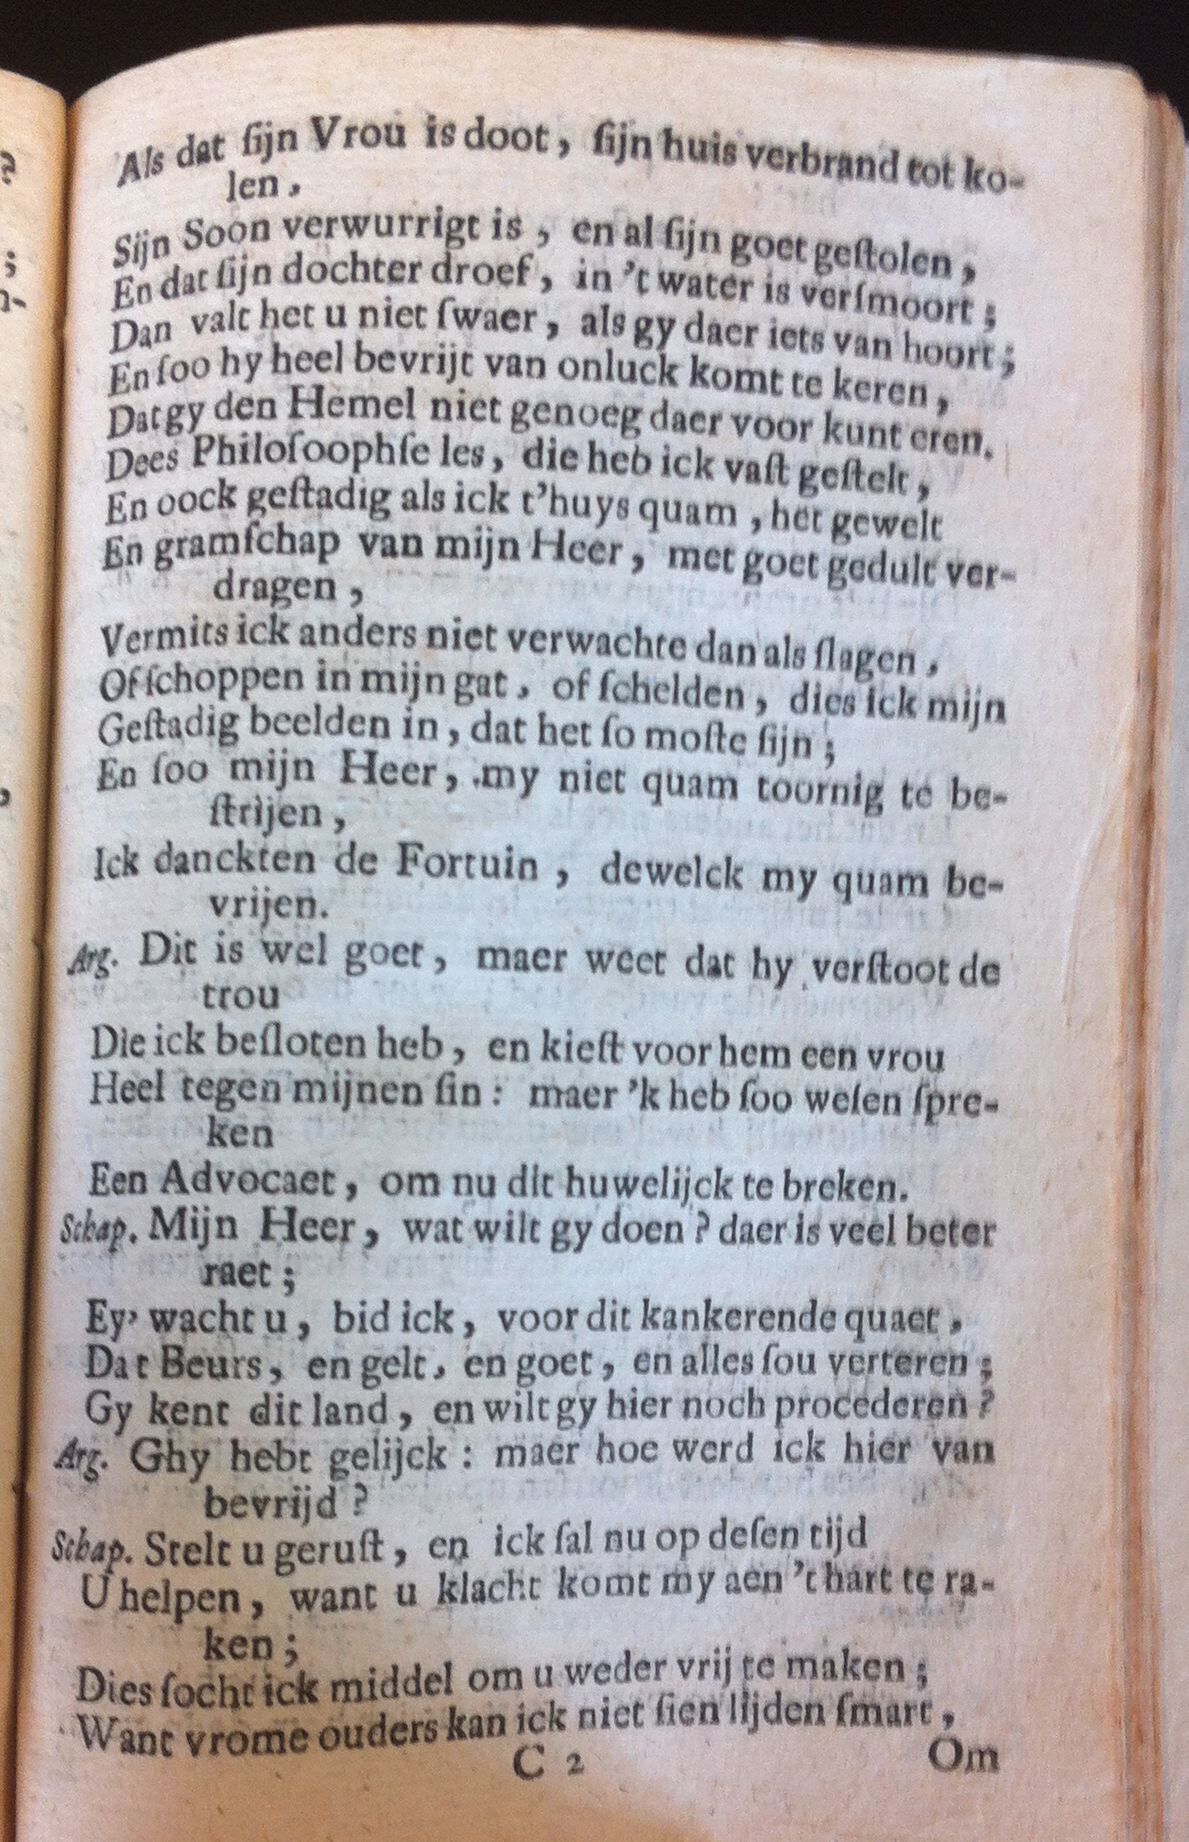 Als dat ſijn Vrou is doot, ſijn huis verbrand tot ko-
len,
Sijn Soon verwurrigt is, en al ſijn goet geſtolen,
En dat ſijn dochter droef, in 't water is verſmoort;
Dan valt het u niet ſwaer, als gy daer iets van hoort;
En ſoo hy heel bevrijt van onluck komt te keren,
Dat gy den Hemel niet genoeg daer voor kunt eren.
Dees Philoſoophſe les, die heb ick vaſt geſtelt,
En oock geſtadig als ick t'huys quam, het gewelt
En gramſchap van mijn Heer, met goet gedult ver-
dragen,
Vermits ick anders niet verwachte dan als ſlagen,
Of ſchoppen in mijn gat, of ſchelden, dies ick mijn
Geſtadig beelden in, dat het ſo moſte ſijn;
En ſoo mijn Heer, my niet quam toornig te be-
ſtrijen,
Ick danckten de Fortuin, dewelck my quam be-
vrijen.
Arg. Dit is wel goet, maer weet dat hy verſtoot de
trou
Die ick beſloten heb, en kieſt voor hem een vrou
Heel tegen mijnen ſin: maer 'k heb ſoo weſen ſpre-
ken
Een Advocaet, om nu dit huwelijck te breken.
Schap. Mijn Heer, wat wilt gy doen? daer is veel beter
raet;
Ey, wacht u, bid ick, voor dit kankerende quaet,
Dat Beurs, en gelt, en goet, en alles ſou verteren;
Gy kent dit land, en wilt gy hier noch procederen?
Arg. Ghy hebt gelijck: maer hoe werd ick hier van
bevrijd?
Schap. Stelt u geruſt, en ick ſal nu op deſen tijd
U helpen, want u klacht komt my aen 't hart te ra-
ken;
Dies ſocht ick middel om u weder vrij te maken;
Want vrome ouders kan ick niet ſien lijden ſmart,
C 2 Om